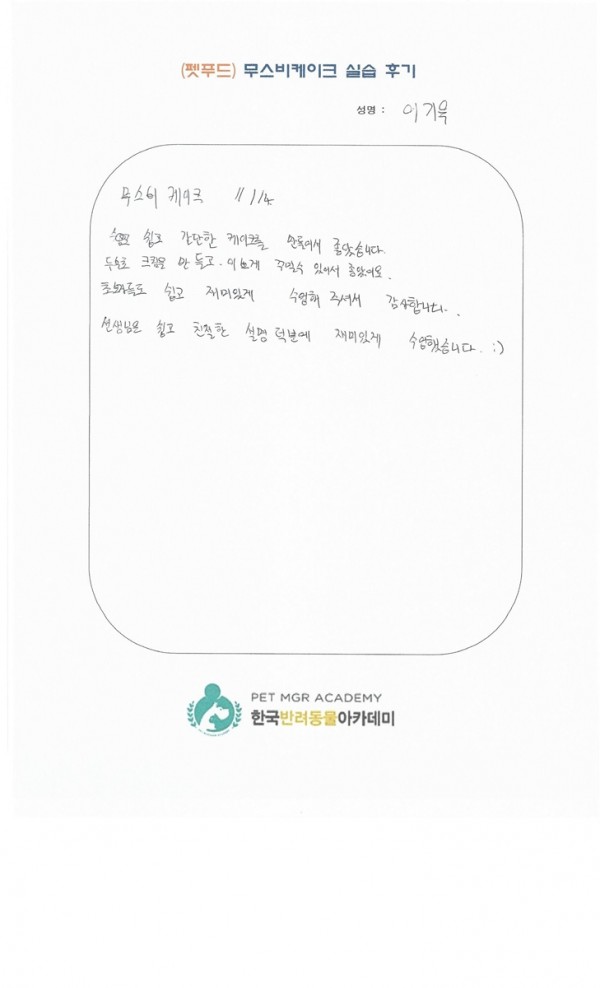 (펫푸드) 무스비케이크 실습 후기
성명 : 이기욱
무스비 케이크 11/4.
쉽고 간단한 케이크를 만들어서 좋았습니다.
두부로 크림을 만들고. 이쁘게 꾸밀수 있어서 좋았어요.
초보자들도 쉽고 재미있게 수업해 주셔서 감사합니다.
선생님은 쉽고 친절한 설명 덕분에 재미있게 수업했습니다. :)
PET MGR ACADEMY
한국반려동물아카데미